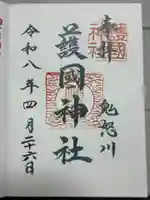 奉拝
鬼怒川
護國神社
令和八年四月二十六日